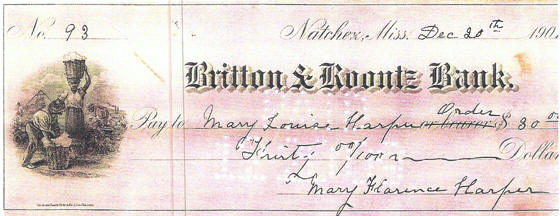 No. 93 Natchez, Miss. Dec 20th 190
Britton & Koontz Bank.
Order
Pay to Mary Louise Harper or bearer $ 80 00
00/100 Dolla
Mary Florence Harper